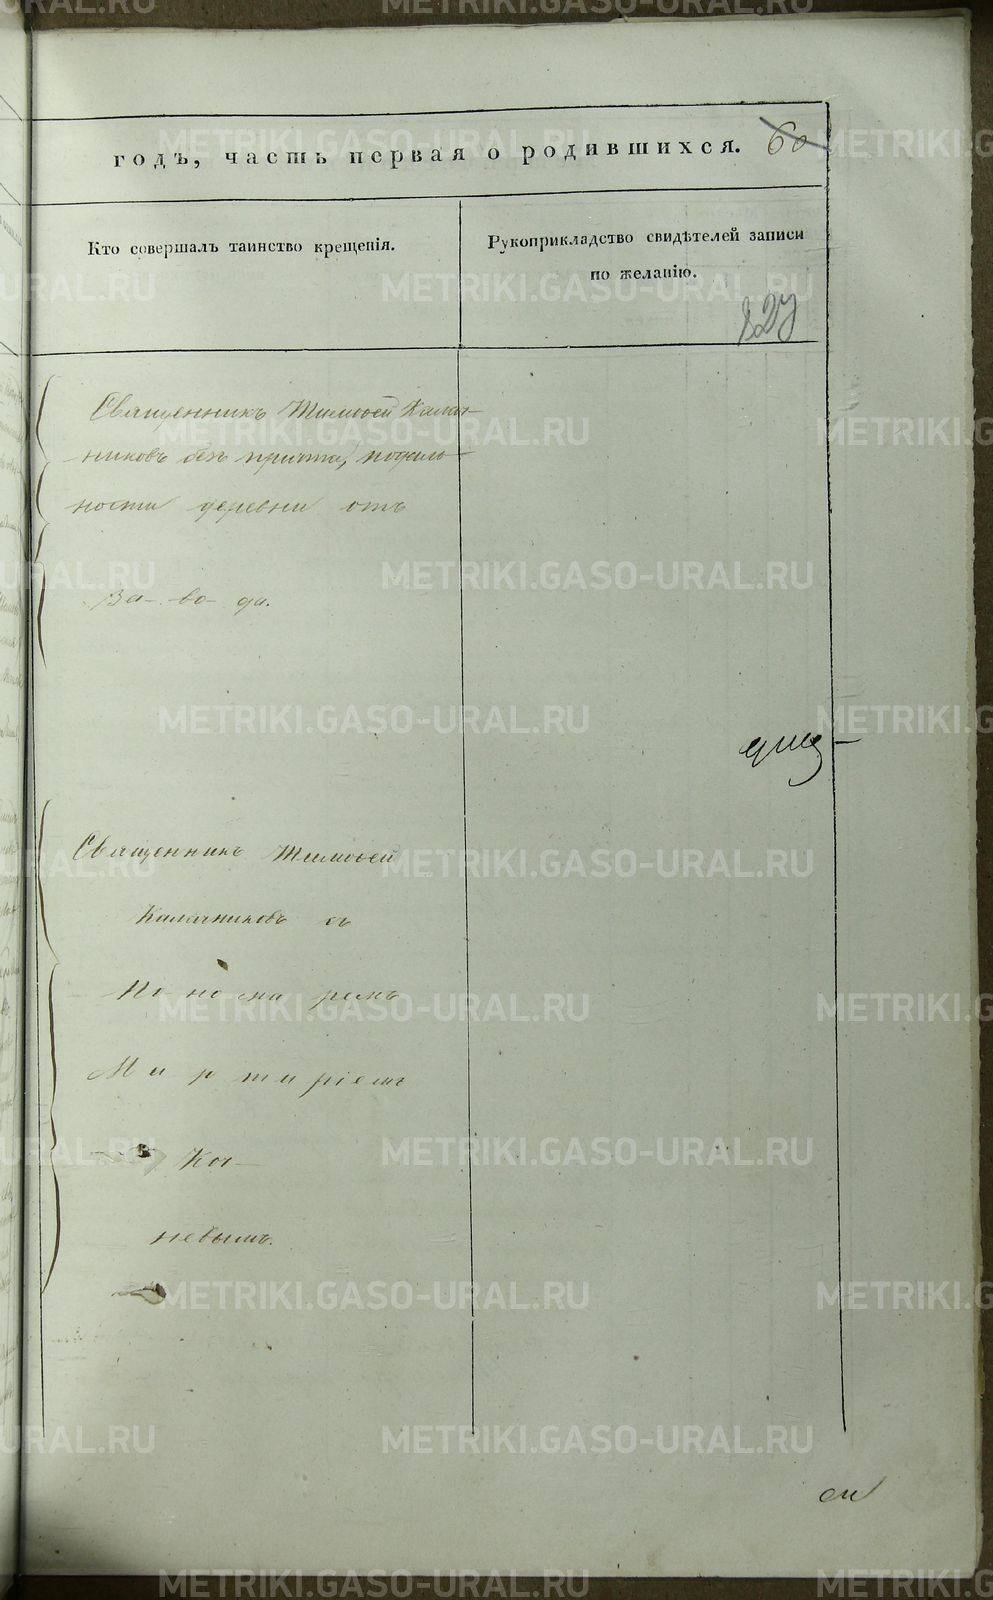 годъ, часть первая о родившихся. 60
Кто совершалъ таинство крещенія.
Рукоприкладство свидѣтелей записи
по желанію.
Священникъ Тимофей Калач-
никовъ безъ причта, подаль-
ности деревни отъ
За-во-да.
Священникъ Тимофей
Калачниковъ съ
По но ма ремъ
М и р т и ріемъ
Ка-
невымъ.
METRIKI.GASO-URAL.RU